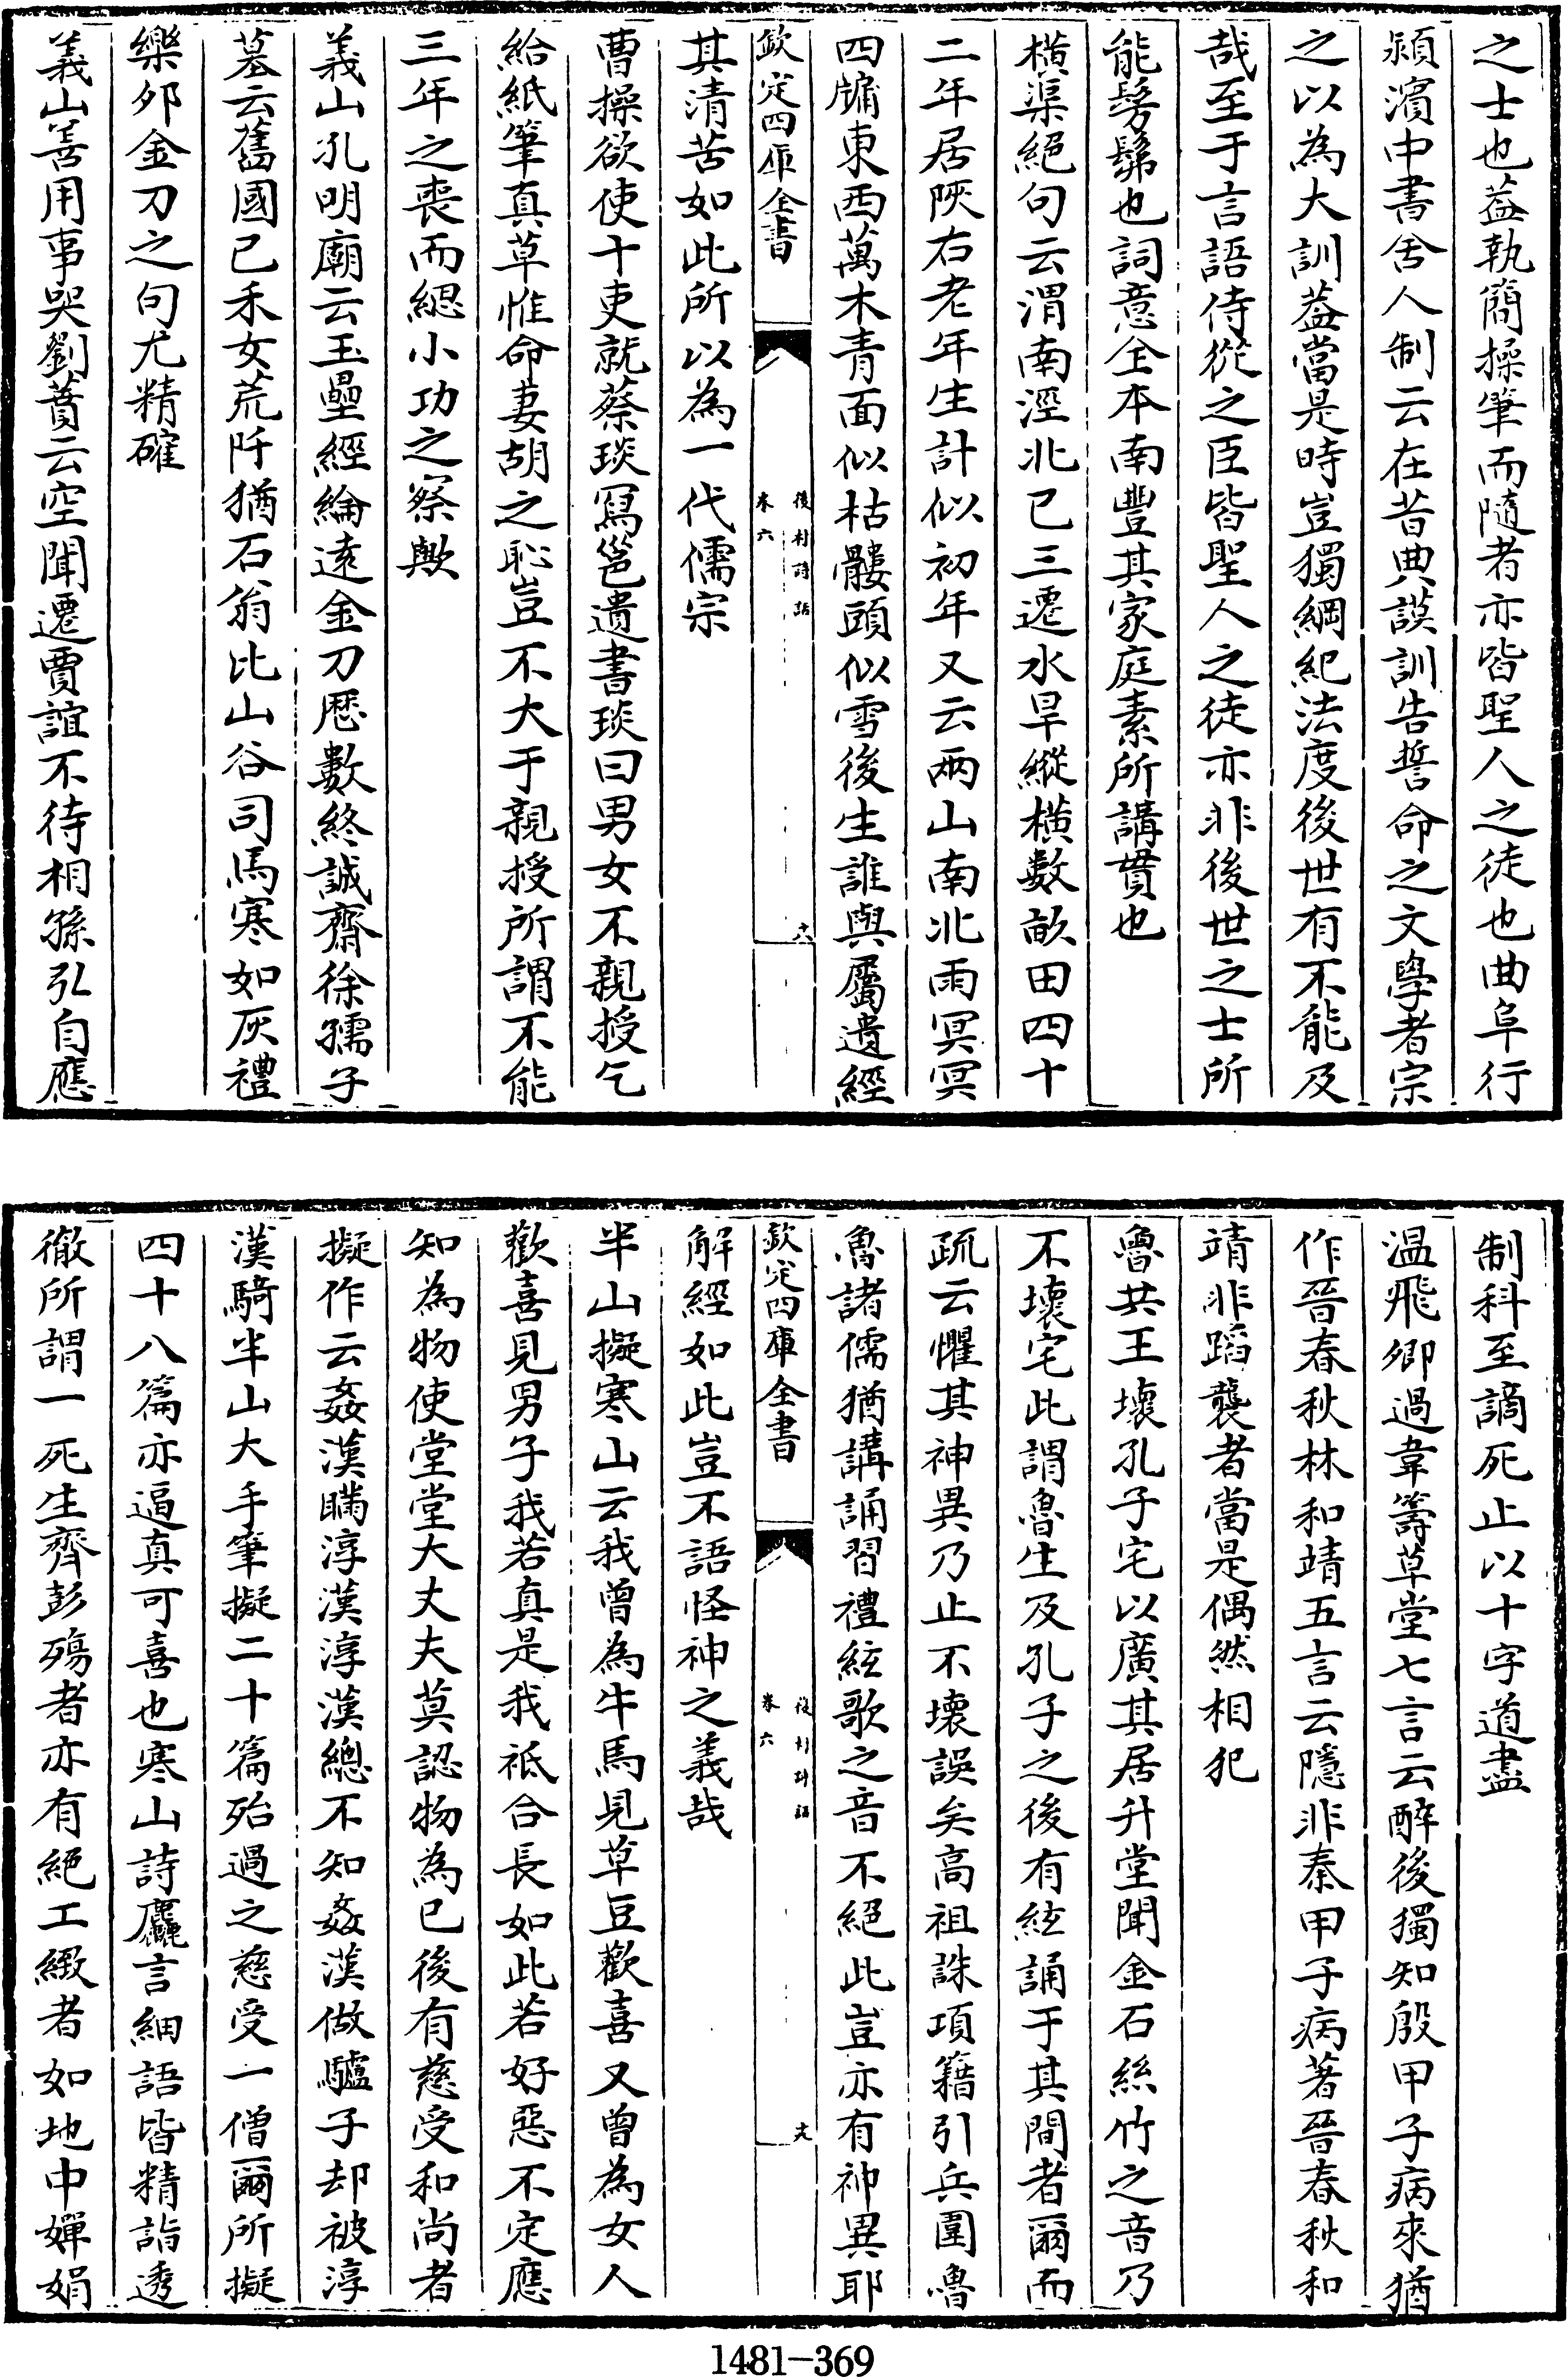 之士也葢執簡操筆而隨者亦皆聖人之徒也曲阜行
潁濱中書舍人制云在昔典謨訓告誓命之文學者宗
之以為大訓葢當是時豈獨綱紀法度後世有不能及
哉至于言語侍從之臣皆聖人之徒亦非後世之士所
能髣髴也詞意全本南豐其家庭素所講貫也
橫渠絕句云渭南涇北已三遷水旱縱橫數畝田四十
二年居陜右老年生計似初年又云兩山南北雨冥冥
四牖東西萬木青面似枯髏頭似雪後生誰與屬遺經
欽定四庫全書
後村詩話
卷六
其清苦如此所以為一代儒宗
曹操欲使十吏就蔡琰寫邕遺書琰曰男女不親授乞
給紙筆真草惟命妻胡之恥豈不大于親授所謂不能
三年之喪而緦小功之察歟
義山孔明廟云玉壘經綸遠金刀厯數終誠齋徐孺子
墓云舊國已禾女荒阡猶石翁比山谷司馬寒如灰禮
樂夘金刀之句尤精確
義山善用事哭劉蕡云空聞遷賈誼不待相孫弘自應
制科至謫死止以十字道盡
温飛卿過韋籌草堂七言云醉後獨知殷甲子病來猶
作晉春秋林和靖五言云隱非秦甲子病著晉春秋和
靖非蹈襲者當是偶然相犯
魯共王壞孔子宅以廣其居升堂聞金石絲竹之音乃
不壞宅此謂魯生及孔子之後有絃誦于其間者爾而
疏云懼其神異乃止不壞誤矣高祖誅項籍引兵圍魯
魯諸儒猶講誦習禮絃歌之音不絕此豈亦有神異耶
欽定四庫全書
後村詩話
卷六
解經如此豈不語怪神之義哉
半山擬寒山云我曾為牛馬見草豆歡喜又曾為女人
歡喜見男子我若真是我祗合長如此若好惡不定應
知為物使堂堂大丈夫莫認物為已後有慈受和尚者
擬作云姦漢瞞淳漢淳漢總不知姦漢做驢子却被淳
漢騎半山大手筆擬二十篇殆過之慈受一僧爾所擬
四十八篇亦逼真可喜也寒山詩麤言細語皆精詣透
徹所謂一死生齊彭殤者亦有絕工緻者如地中嬋娟
1481-369